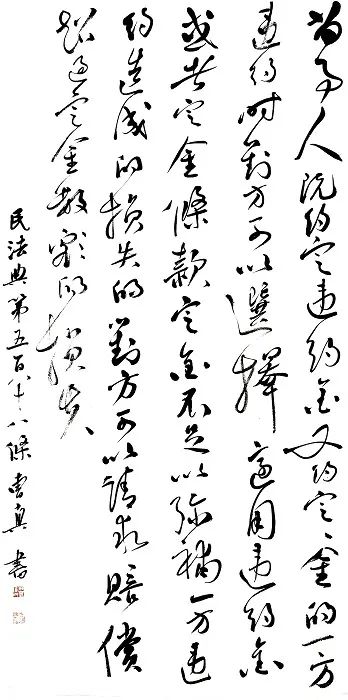 當事人既約定違約金又約定定金的一方
違約時對方可以選擇適用違約金
或者定金條款定金不足以弥補一方違
約造成的損失的對方可以請求賠償
超過定金數額的損失
民法典第五百八十八條 曹真 書